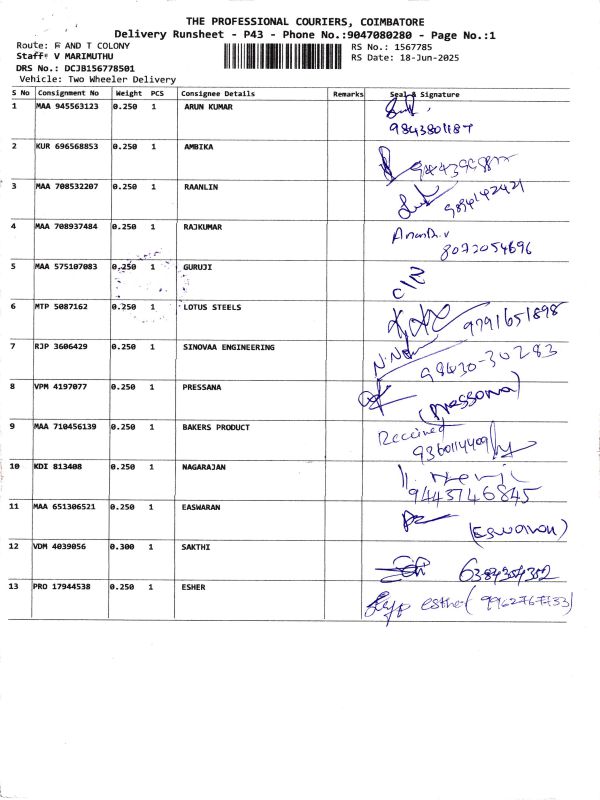 THE PROFESSIONAL COURIERS, COIMBATORE
Delivery Runsheet - P43 - Phone No.:9047080280 - Page No.:1
Route: R AND T COLONY
RS No.: 1567785
Staff: V MARIMUTHU
RS Date: 18-Jun-2025
DRS No.: DCJB156778501
Vehicle: Two Wheeler Delivery
S No Consignment No Weight PCS Consignee Details Remarks Seal & Signature
1 MAA 945563123 0.250 1 ARUN KUMAR
9843801187
2 KUR 696568853 0.250 1 AMBIKA
3 MAA 708532207 0.250 1 RAANLIN
9894142421
4 MAA 708937484 0.250 1 RAJKUMAR
8072054696
5 MAA 575107083 0.250 1 GURUJI
C/2
6 MTP 5087162 0.250 1 LOTUS STEELS
9791651898
7 RJP 3606429 0.250 1 SINOVAA ENGINEERING
98430-30283
8 VPM 4197077 0.250 1 PRESSANA
(Pressona)
9 MAA 710456139 0.250 1 BAKERS PRODUCT
Received
9360114409
10 KDI 813408 0.250 1 NAGARAJAN
9443746845
11 MAA 651306521 0.250 1 EASWARAN
(Eswaran)
12 VDM 4039056 0.300 1 SAKTHI
6384354352
13 PRO 17944538 0.250 1 ESHER
esther (9962767733)